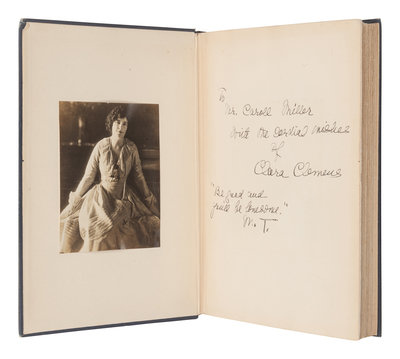 To
Mr. Caroll Miller
with the cordial wishes
of
Clara Clemens
"Be good and
you'll be lonesome."
M. T.